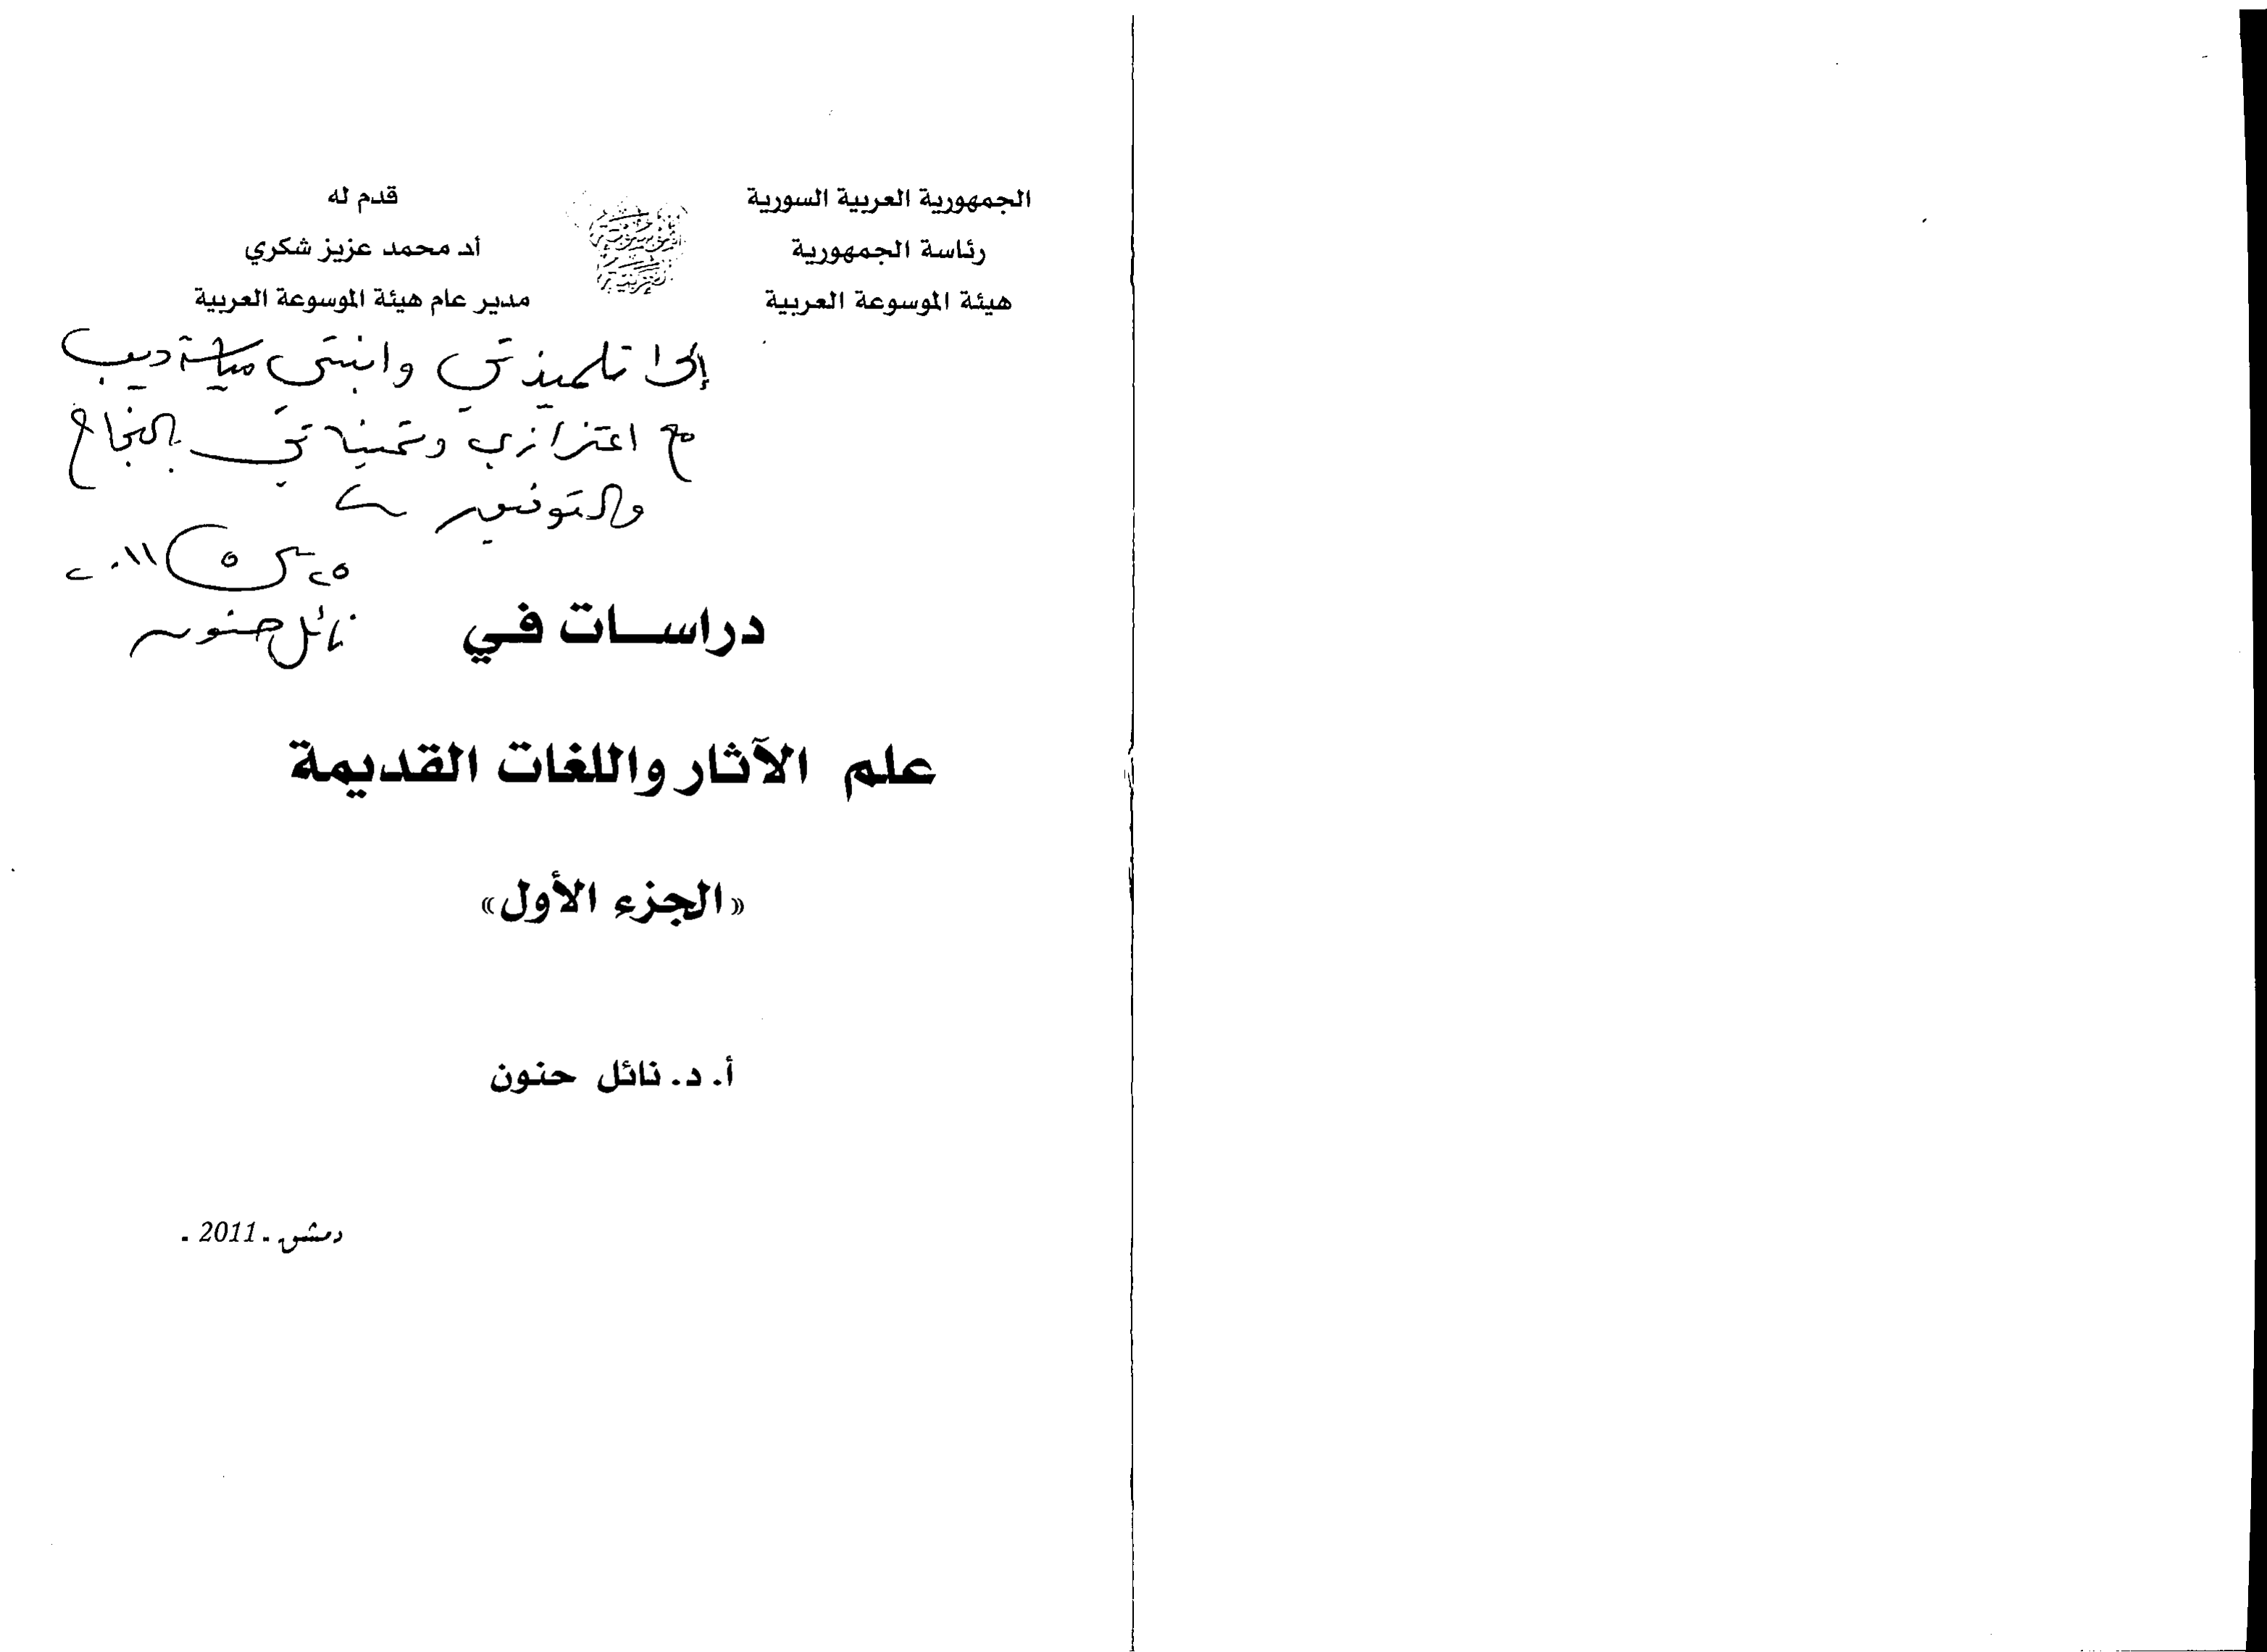 الجمهورية العربية السورية
رئاسة الجمهورية
هيئة الموسوعة العربية
قدم له
أ.د محمد عزيز شكري
مدير عام هيئة الموسوعة العربية
إلى تلميذتي وابنتي مياسة ديب
مع اعتزازي وتمنياتي بالنجاح
والتوفيق
نائل حنون
دراسات في
علم الآثار واللغات القديمة
«الجزء الأول»
أ. د. نائل حنون
دمشق - 2011 -